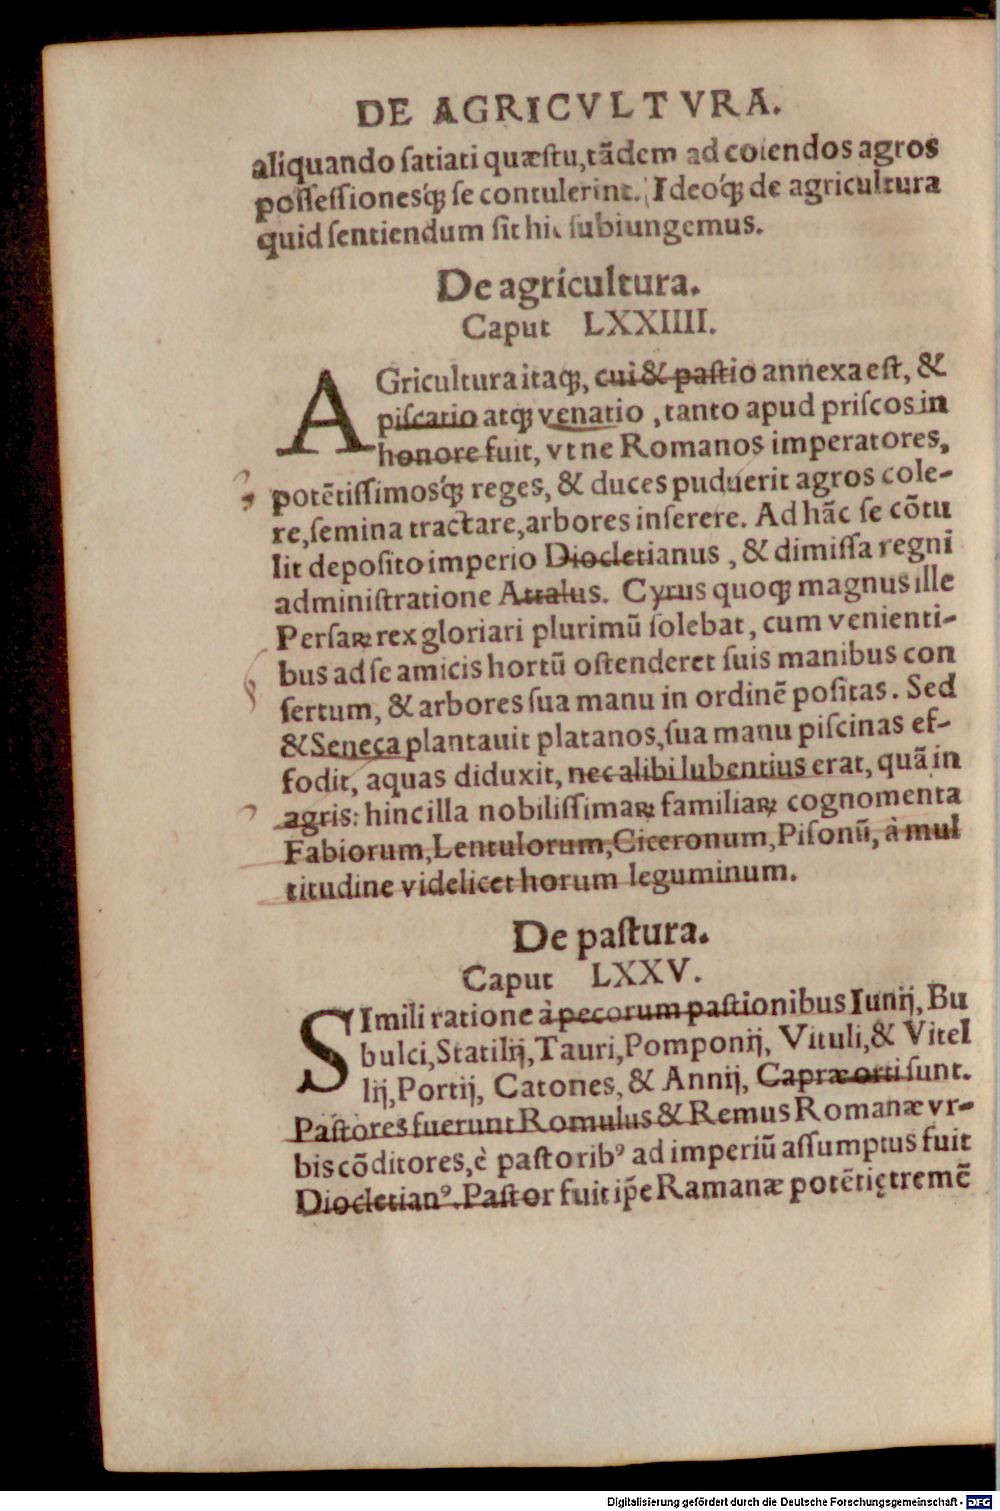 DE AGRICVLTVRA.
aliquando satiati quæstu, tãdem ad colendos agros
possessionesq́ꝫ se contulerint. Ideoq́ꝫ de agricultura
quid sentiendum sit hic subiungemus.
De agricultura.
Caput LXXIIII.
AGricultura itaqꝫ, cui & pastio annexa est, &
piscatio atqꝫ venatio, tanto apud priscos in
honore fuit, vt ne Romanos imperatores,
potẽtissimosq́ꝫ reges, & duces puduerit agros cole-
re, semina tractare, arbores inserere. Ad hãc se cõtu
lit deposito imperio Diocletianus, & dimissa regni
administratione Attalus. Cyrus quoqꝫ magnus ille
Persaꝝ rex gloriari plurimũ solebat, cum venienti-
bus ad se amicis hortũ ostenderet suis manibus con
sertum, & arbores sua manu in ordinẽ positas. Sed
& Seneca plantauit platanos, sua manu piscinas ef-
fodit, aquas diduxit, nec alibi lubentius erat, quã in
agris: hinc illa nobilissimaꝝ familiaꝝ cognomenta
Fabiorum, Lentulorum, Ciceronum, Pisonũ, à mul
titudine videlicet horum leguminum.
De pastura.
Caput LXXV.
SImili ratione à pecorum pastionibus Iunij, Bu
bulci, Statilij, Tauri, Pomponij, Vituli, & Vitel
lij, Portij, Catones, & Annij, Capræ orti sunt.
Pastores fuerunt Romulus & Remus Romanæ vr-
bis cõditores, è pastoribꝰ ad imperiũ assumptus fuit
Diocletianꝰ. Pastor fuit ip̃e Ramanæ potẽtię tremẽ
Digitalisierung gefördert durch die Deutsche Forschungsgemeinschaft - DFG